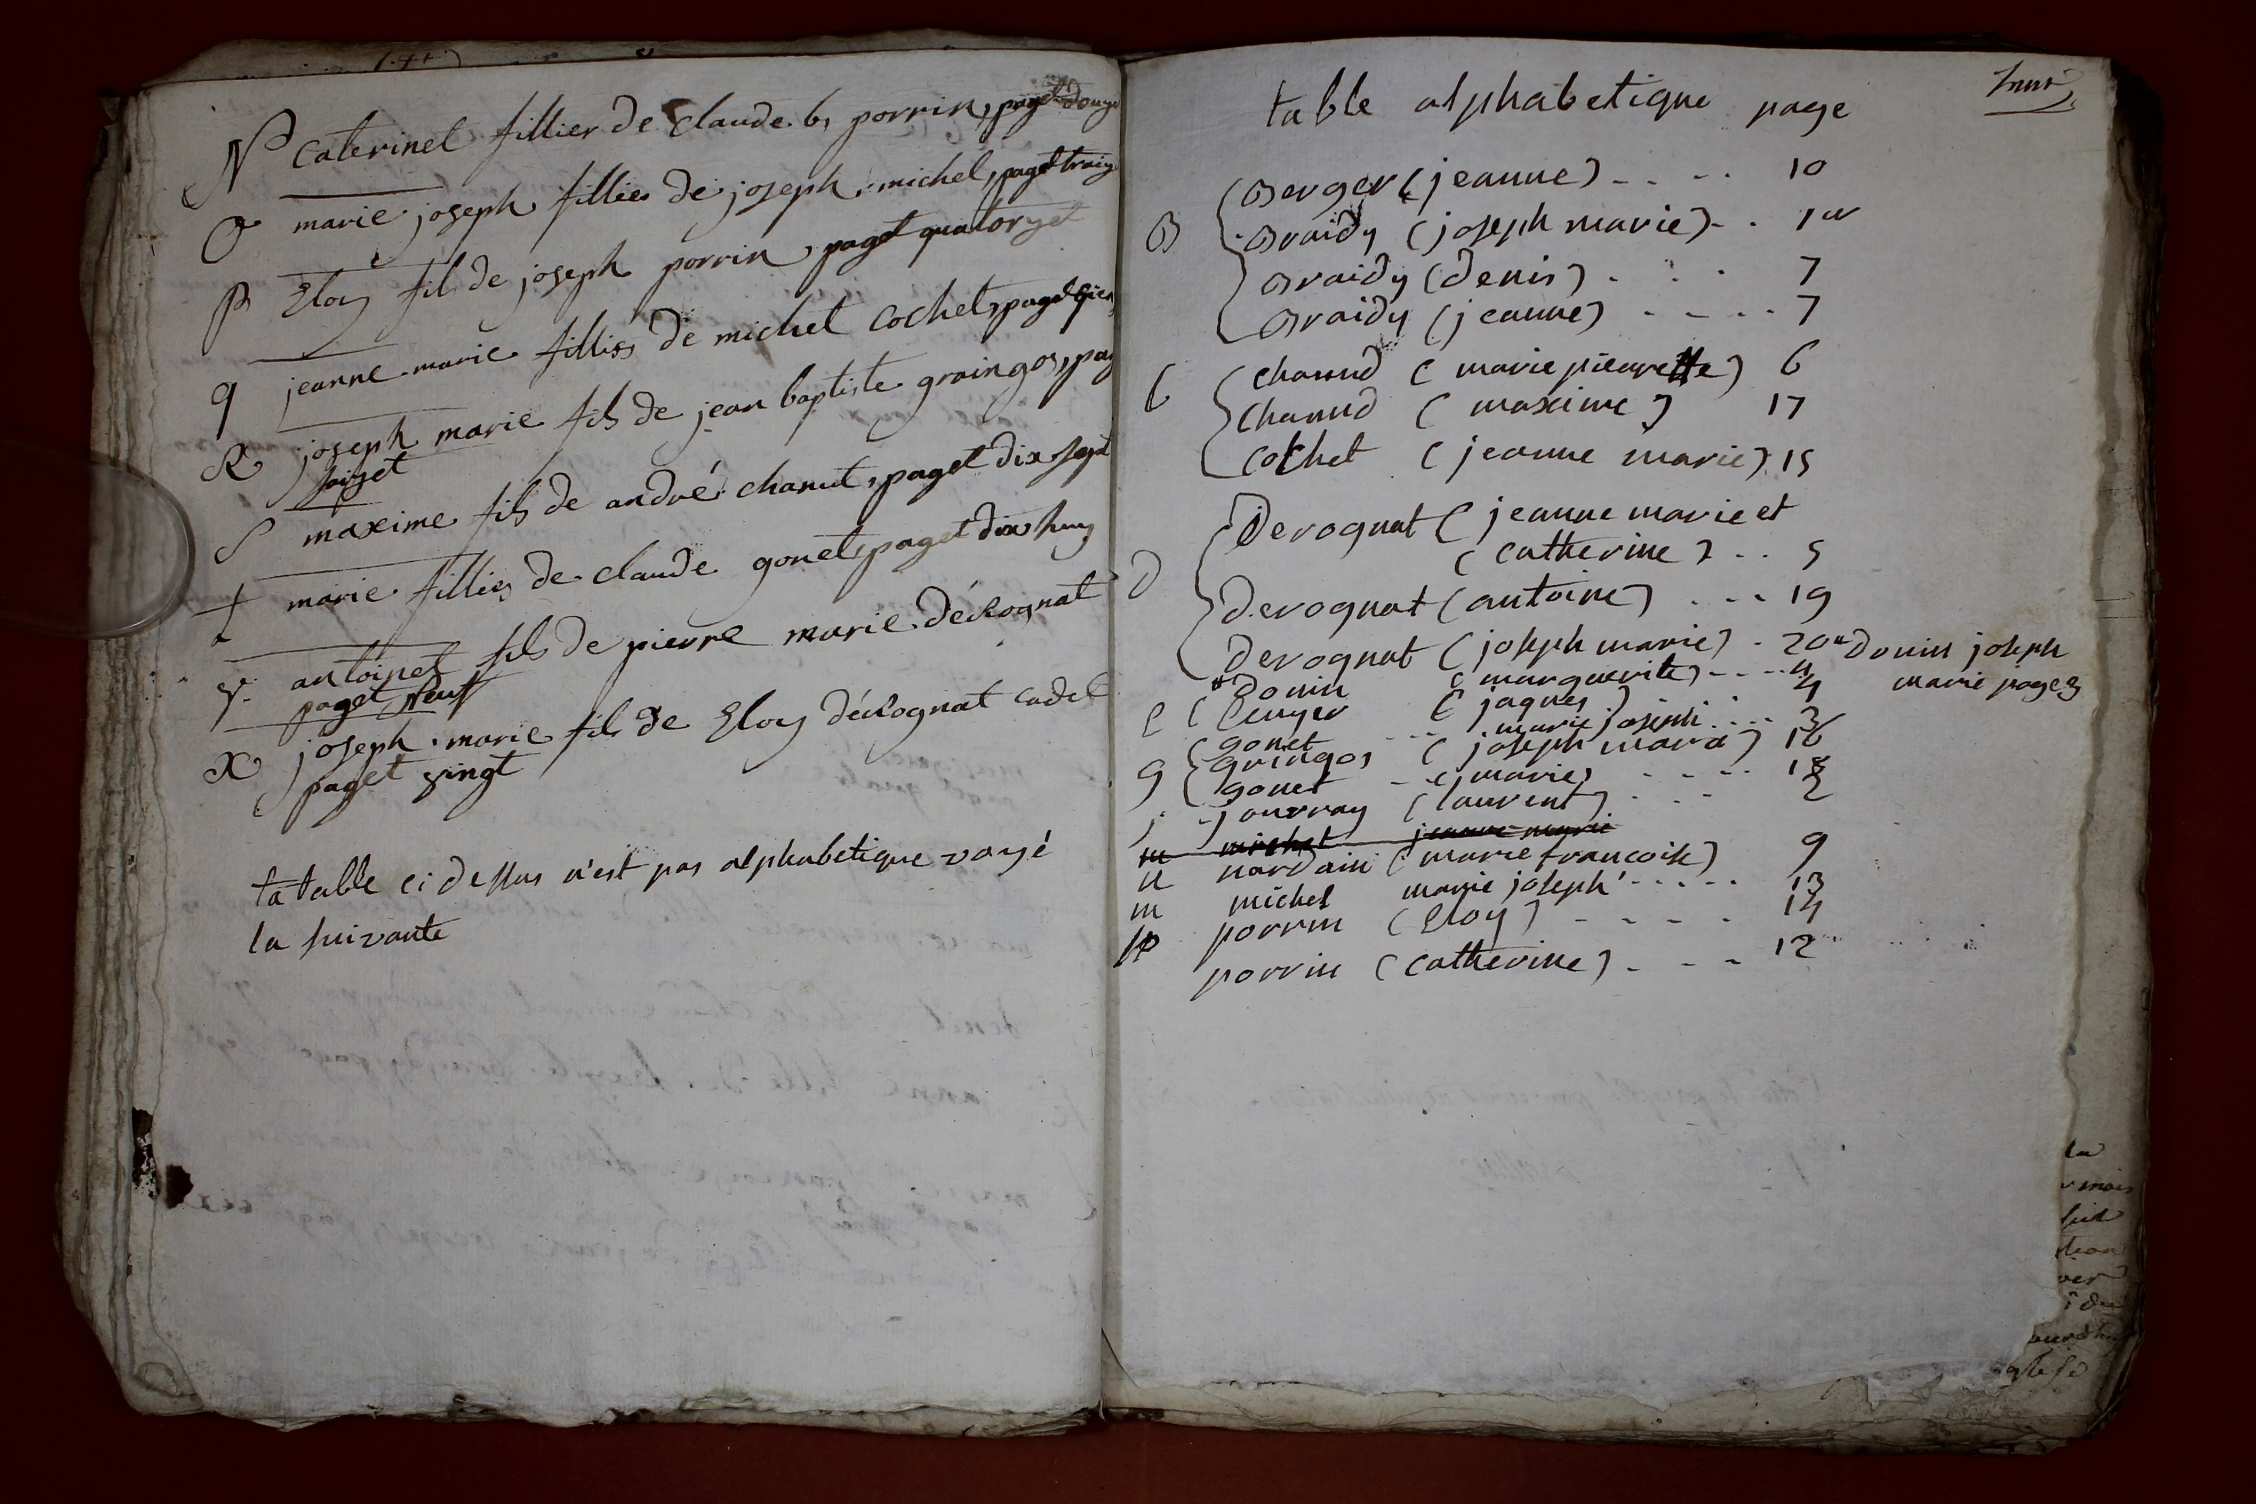 N caterinet fillier de claude b, porrin, paget douze
O marie joseph filliee de joseph michel, paget traiz
P Eloy fil de joseph porrin, paget quatorzet
q jeanne marie filliss de michel cochet, paget
R joseph marie fils de jean baptiste graingos, pag
saizet
S maxime fils de andré chanut, paget dix sept
t marie filliss de claude gonet, paget dix huy
v. antoinet fils de pierre marie dérognat
paget Neuf
X joseph marie fils de Eloy dérognat cadet
paget vingt
la table ci dessus n'est pas alphabetique voyé
la suivante
table alphabetique page
Berger (jeanne) - - - - 10
B Braidy (joseph marie) - - 1er
Braidy (denis) - - - 7
Braidy (jeanne) - - - - 7
C chanud (marie pierrette) 6
chanud (maxime) 17
cochet (jeanne marie) 15
Derognat (jeanne marie et
(catherine) - - 5
D derognat (antoine) - - - 19
derognat (joseph marie) - 20 donin joseph
donin (marguerite) - - - 4 marie page 3
(jaques)
gonet - - - marie joseph - - - - 3
g gringos (joseph marie) 16
gonet - - (marie) - - - - 18
j jouvray (laurent) - - - 2
m michel jeanne marie
n nardain (marie francoise) 9
m michel marie joseph - - - - - 13
p porrin (Eloy) - - - - - 14
porrin (catherine) - - - 12
la